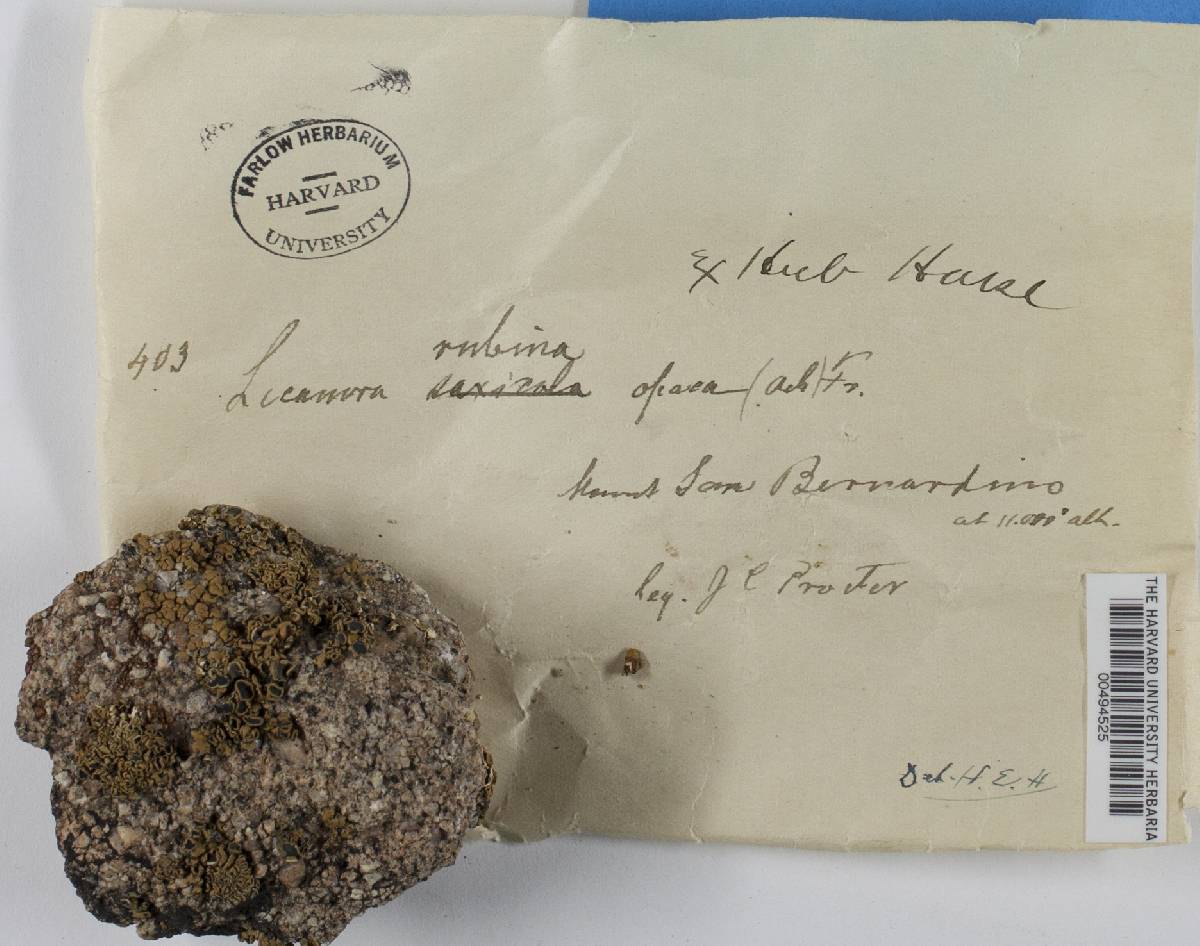 FARLOW HERBARIUM
HARVARD
UNIVERSITY
Ex Herb Hasse
rubina
403 Lecanora saxicola opaca (Ach) Fr.
Mount San Bernardino
at 11.000' alt.
leg. J C Procter
Det. H. E. H
THE HARVARD UNIVERSITY HERBARIA
00494525